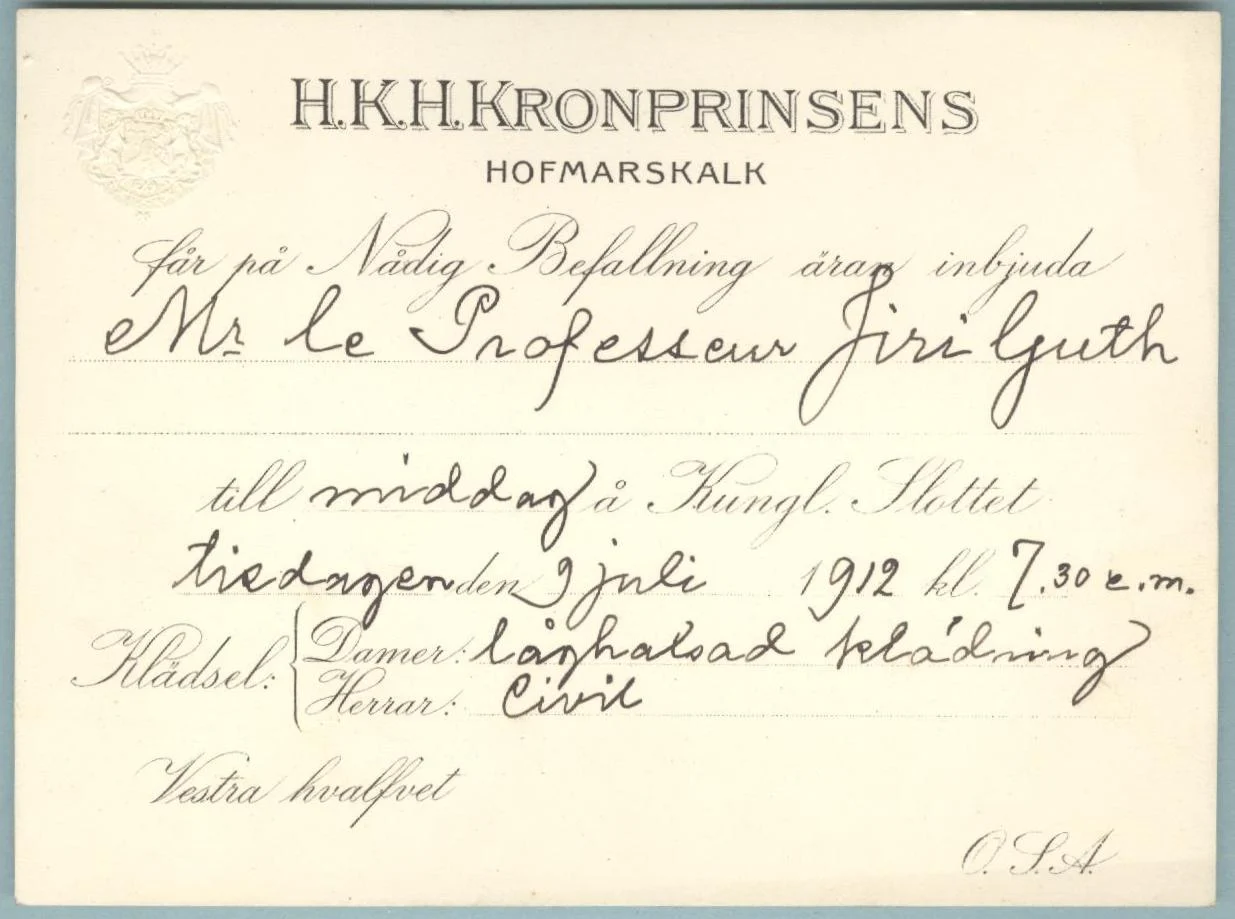 H.K.H. KRONPRINSENS
HOFMARSKALK
får på Nådig Befallning äran inbjuda
Mr le Professeur Jiri Guth
till middag å Kungl. Slottet
tisdagen den 9 juli 1912 kl. 7.30 e.m.
Klädsel: { Damer: låghalsad klädning
Herrar: Civil
Vestra hvalfvet
O.S.A.